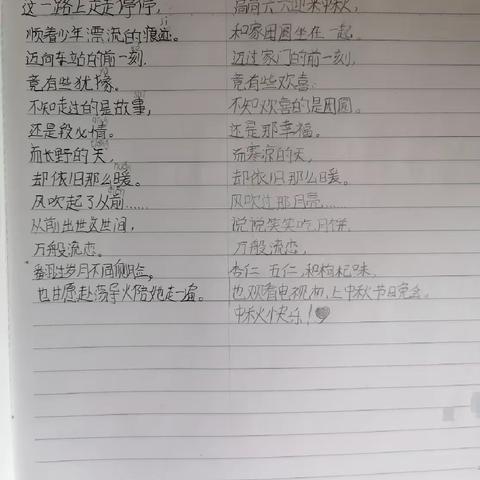 这一路上走走停停，
顺着少年漂流的痕迹。
迈向车站的前一刻，
竟有些犹豫。
不知走过的是故事，
还是段心情。
而长野的天，
却依旧那么暖。
风吹起了从前……
从前出世这世间，
万般流恋。
翻过岁月不同侧脸，
也甘愿赴汤蹈火陪她走一遍。
高高兴兴迎来中秋，
和家团圆坐在一起。
迈过家门的前一刻，
竟有些欢喜
不知欢喜的是团圆，
还是那幸福。
而寒凉的天，
却依旧那么暖。
风吹过那月亮……
说说笑笑吃月饼，
万般流恋，
杏仁 五仁 和枸杞味，
也观看电视剧，上中秋节日晚会。
中秋快乐！